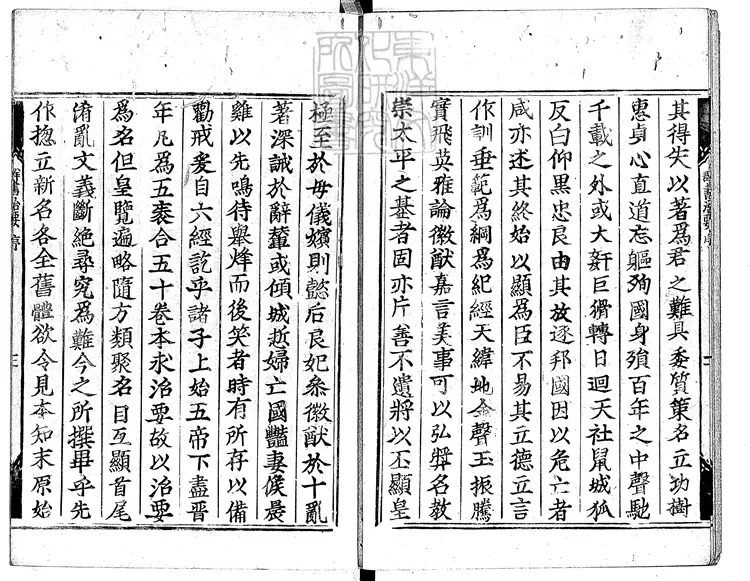 其得失以著爲君之難其委質策名立功樹
惠貞心直道忘軀殉國身殞百年之中聲馳
千載之外或大姧巨猾轉日迴天社鼠城狐
反白仰黒忠良由其放逐邦國因以危亡者
咸亦述其終始以顯爲臣不易其立德立言
作訓垂範爲綱爲紀經天緯地金聲玉振騰
實飛英雅論徽猷嘉言美事可以弘奬名教
崇太平之基者固亦片善不遺將以丕顯皇
極至於母儀嬪則懿后良妃參徽猷於十亂
著深誠於辭輦或傾城悊婦亡國豔妻候晨
雞以先鳴待舉烽而後笑者時有所存以備
勸戒爰自六經訖乎諸子上始五帝下盡晉
年凡爲五袠合五十卷本求治要故以治要
爲名但皇覽遍略隨方類聚名目互顯首尾
淆亂文義斷絶尋究爲難今之所撰異乎先
作揔立新名各全舊體欲令見本知末原始
群書治要 序
三